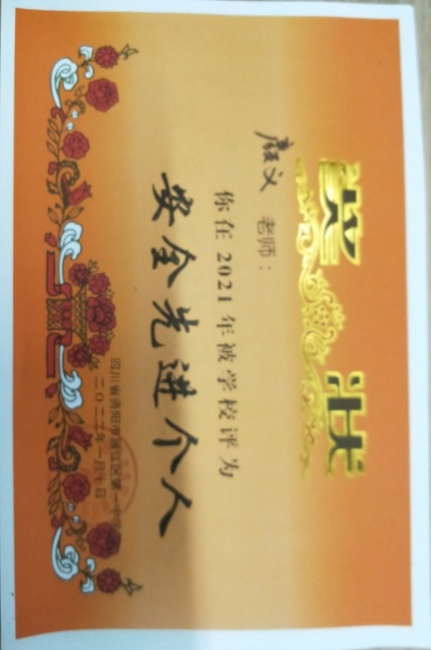 奖状
义 老师：
你在2021年被学校评为
安全先进个人
四川省资阳市雁江区第一中学
二〇二二年一月十日